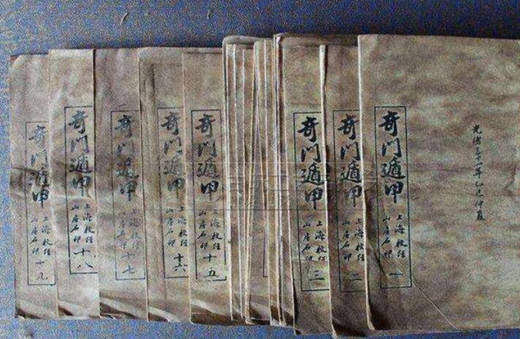 光緒三十一年乙巳仲夏
奇门遁甲
上海校经
山房石印
一
奇门遁甲
上海校经
山房石印
二
奇门遁甲
上海校经
山房石印
三
奇门遁甲
上海校经
山房石印
十五
奇门遁甲
上海校经
山房石印
十六
奇门遁甲
上海校经
山房石印
十七
奇门遁甲
上海校经
山房石印
十八
奇门遁甲
上海校经
山房石印
十九